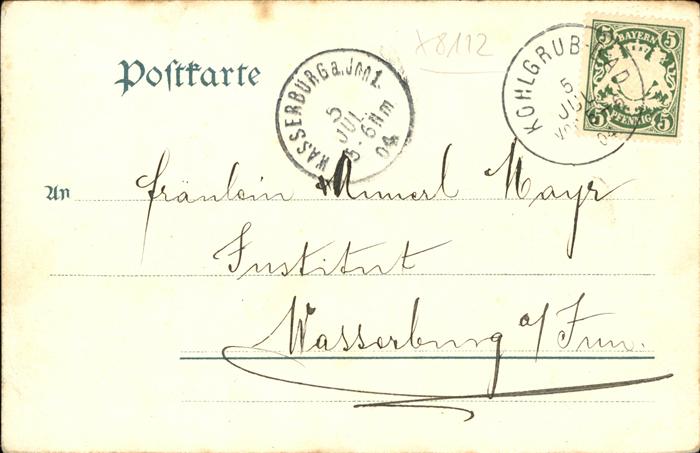 x8112
Postkarte
WASSERBURG a. Inn 1.
5
JUL
5-6 Nm
04
KOHLGRUB-BAD
5
JUL
04
5 BAYERN 5
5 PFENNIG 5
An Fräulein Annerl Mayr
Institut
Wasserburg a/ Inn.